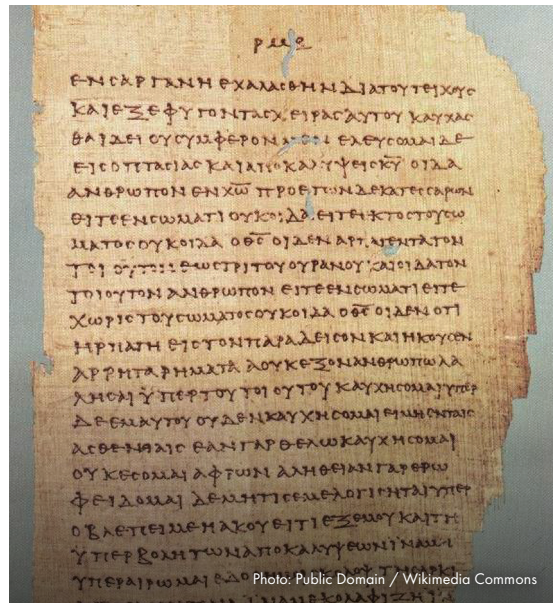 ρμε
ΕΝϹΑΡΓΑΝΗ ΕΧΑΛΑϹΘΗΝ ΔΙΑΤΟΥΤΕΙΧΟΥϹ
ΚΑΙΕΞΕΦΥΓΟΝΤΑϹΧΕΙΡΑϹ ΑΥΤΟΥ ΚΑΥΧΑϹ
ΘΑΙ ΔΕΙ ΟΥϹΥΜΦΕΡΟΝ ΕΛΕΥϹΟΜΑΙ ΔΕ
ΕΙϹ ΟΠΤΑϹΙΑϹ ΚΑΙΑΠΟΚΑΛΥΨΕΙϹ Κ̅Υ̅ ΟΙΔΑ
ΑΝΘΡΩΠΟΝ ΕΝ Χ̅Ω̅ ΠΡΟΕΤΩΝ ΔΕΚΑΤΕϹϹΑΡΩΝ
ΕΙΤΕΕΝϹΩΜΑΤΙ ΟΥΚΟΙΔΑ ΕΙΤΕ ΕΚΤΟϹΤΟΥϹΩ
ΜΑΤΟϹΟΥΚΟΙΔΑ Ο Θ̅Ϲ̅ ΟΙΔΕΝ ΑΡΠΑΓΕΝΤΑ ΤΟΝ
ΤΟΙΟΥΤΟΝ ΕΩϹΤΡΙΤΟΥΟΥΡΑΝΟΥ ΚΑΙΟΙΔΑΤΟΝ
ΤΟΙΟΥΤΟΝ ΑΝΘΡΩΠΟΝ ΕΙΤΕΕΝϹΩΜΑΤΙ ΕΙΤΕ
ΧΩΡΙϹ ΤΟΥϹΩΜΑΤΟϹΟΥΚΟΙΔΑ Ο Θ̅Ϲ̅ ΟΙΔΕΝ ΟΤΙ
ΗΡΠΑΓΗ ΕΙϹΤΟΝΠΑΡΑΔΕΙϹΟΝ ΚΑΙΗΚΟΥϹΕΝ
ΑΡΡΗΤΑΡΗΜΑΤΑ ΑΟΥΚΕΞΟΝΑΝΘΡΩΠΩΛΑ
ΛΗϹΑΙ ΫΠΕΡΤΟΥΤΟΙΟΥΤΟΥ ΚΑΥΧΗϹΟΜΑΙΫΠΕΡ
ΔΕΕΜΑΥΤΟΥ ΟΥΔΕΝΚΑΥΧΗϹΟΜΑΙ ΕΙΜΗΕΝΤΑΙϹ
ΑϹΘΕΝΕΙΑΙϹ ΕΑΝΓΑΡΘΕΛΩΚΑΥΧΗϹΟΜΑΙ
ΟΥΚΕϹΟΜΑΙ ΑΦΡΩΝ ΑΛΗΘΕΙΑΝΓΑΡΕΡΩ
ΦΕΙΔΟΜΑΙ ΔΕΜΗΤΙϹΕΜΕΛΟΓΙϹΗΤΑΙΫΠΕΡ
ΟΒΛΕΠΕΙΜΕΗΑΚΟΥΕΙΤΙΕΞΕΜΟΥ ΚΑΙΤΗ
ΫΠΕΡΒΟΛΗΤΩΝΑΠΟΚΑΛΥΨΕΩΝΙΝΑΜΗ
ΫΠΕΡΑΙΡΩΜΑΙ ΕΔΟΘΗ
Photo: Public Domain / Wikimedia Commons